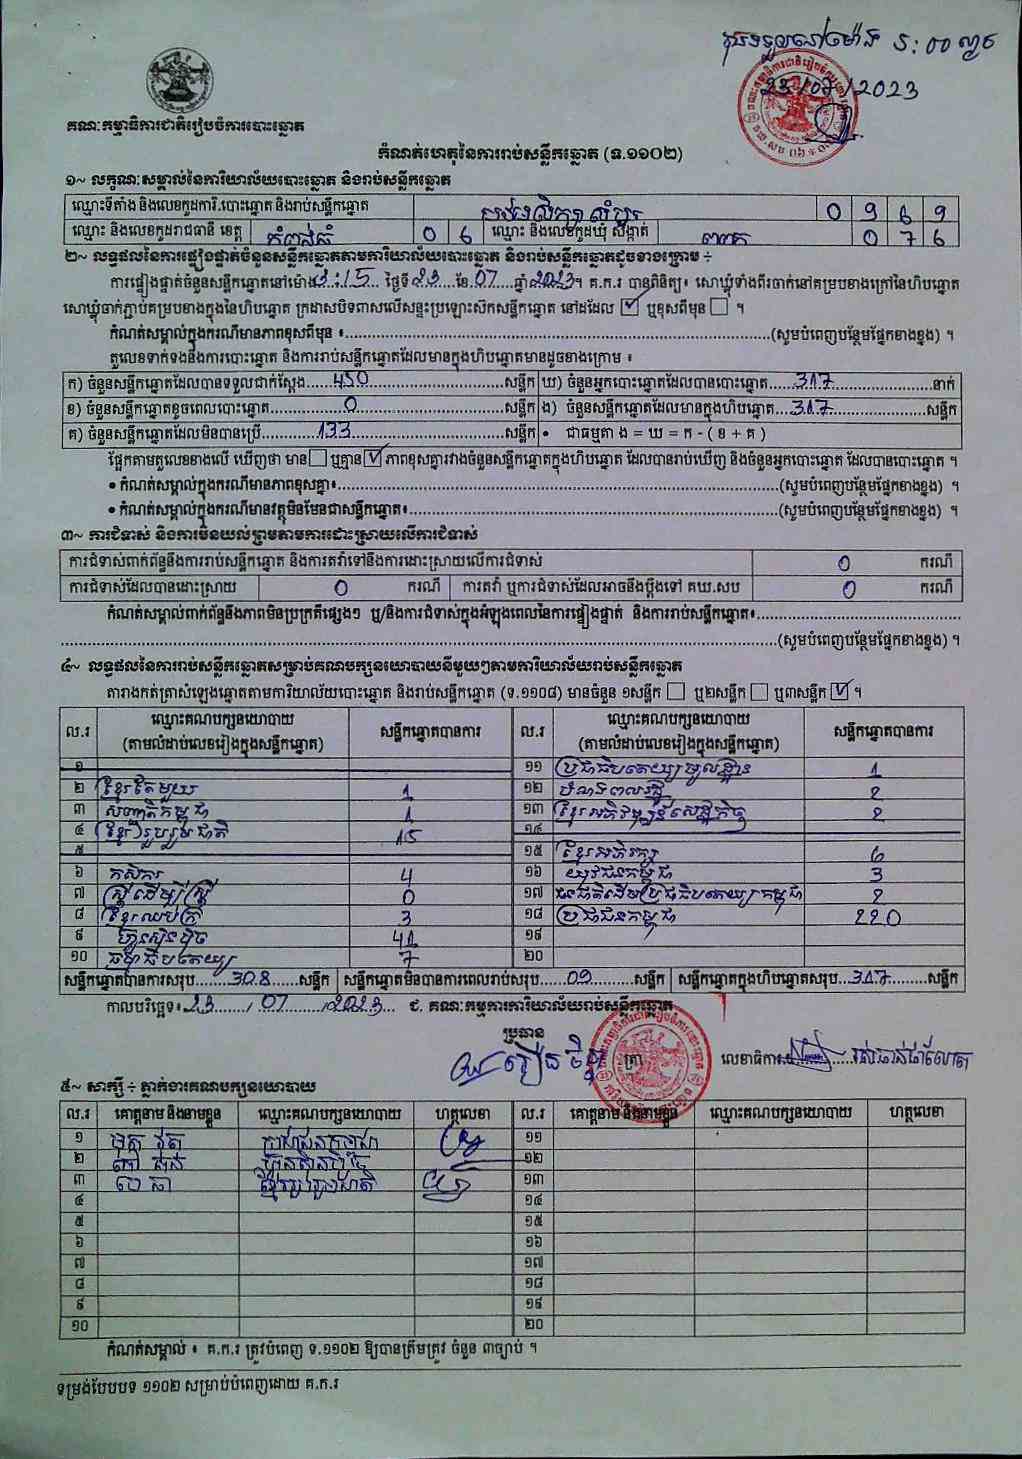 23/07/2023
គណៈកម្មាធិការជាតិរៀបចំការបោះឆ្នោត
កំណត់ហេតុនៃការរាប់សន្លឹកឆ្នោត (ទ.១១០២)
១~ លក្ខណៈសម្គាល់នៃការិយាល័យបោះឆ្នោត និងរាប់សន្លឹកឆ្នោត
ឈ្មោះទីតាំង និងលេខកូដការិ.បោះឆ្នោត និងរាប់សន្លឹកឆ្នោត 0 9 6 9
ឈ្មោះ និងលេខកូដរាជធានី ខេត្ត កំពង់ធំ 0 6 ឈ្មោះ និងលេខកូដឃុំ សង្កាត់ 0 7 6
២~ លទ្ធផលនៃការផ្ទៀងផ្ទាត់ចំនួនសន្លឹកឆ្នោតតាមការិយាល័យបោះឆ្នោត និងរាប់សន្លឹកឆ្នោតដូចខាងក្រោម ÷
ការផ្ទៀងផ្ទាត់ចំនួនសន្លឹកឆ្នោតនៅម៉ោង 3:15 ថ្ងៃទី 23 ខែ 07 ឆ្នាំ 2023។ គ.ក.រ បានពិនិត្យ៖ សោឃ្លុំទាំងពីរចាក់នៅគម្របខាងក្រៅនៃហិបឆ្នោត
សោឃ្លុំចាក់ភ្ជាប់គម្របខាងក្នុងនៃហិបឆ្នោត ក្រដាសបិទពាសលើសន្ទះប្រឡោះស៊កសន្លឹកឆ្នោត នៅដដែល ☑ ឬខុសពីមុន ☐ ។
កំណត់សម្គាល់ក្នុងករណីមានភាពខុសពីមុន ៖ (សូមបំពេញបន្ថែមផ្នែកខាងខ្នង) ។
តួលេខទាក់ទងនឹងការបោះឆ្នោត និងការរាប់សន្លឹកឆ្នោតដែលមានក្នុងហិបឆ្នោតមានដូចខាងក្រោម ៖
ក) ចំនួនសន្លឹកឆ្នោតដែលបានទទួលជាក់ស្តែង 450 សន្លឹក ឃ) ចំនួនអ្នកបោះឆ្នោតដែលបានបោះឆ្នោត 317 នាក់
ខ) ចំនួនសន្លឹកឆ្នោតខូចពេលបោះឆ្នោត 0 សន្លឹក ង) ចំនួនសន្លឹកឆ្នោតដែលមានក្នុងហិបឆ្នោត 317 សន្លឹក
គ) ចំនួនសន្លឹកឆ្នោតដែលមិនបានប្រើ 133 សន្លឹក • ជាធម្មតា ង = ឃ = ក - ( ខ + គ )
ផ្អែកតាមតួលេខខាងលើ ឃើញថា មាន ☐ ឬគ្មាន ☑ ភាពខុសគ្នារវាងចំនួនសន្លឹកឆ្នោតក្នុងហិបឆ្នោត ដែលបានរាប់ឃើញ និងចំនួនអ្នកបោះឆ្នោត ដែលបានបោះឆ្នោត ។
• កំណត់សម្គាល់ក្នុងករណីមានភាពខុសគ្នា៖ (សូមបំពេញបន្ថែមផ្នែកខាងខ្នង) ។
• កំណត់សម្គាល់ក្នុងករណីមានវត្ថុមិនមែនជាសន្លឹកឆ្នោត៖ (សូមបំពេញបន្ថែមផ្នែកខាងខ្នង) ។
៣~ ការជំទាស់ និងការមិនយល់ព្រមតាមការដោះស្រាយលើការជំទាស់
ការជំទាស់ពាក់ព័ន្ធនឹងការរាប់សន្លឹកឆ្នោត និងការតវ៉ាទៅនឹងការដោះស្រាយលើការជំទាស់ 0 ករណី
ការជំទាស់ដែលបានដោះស្រាយ 0 ករណី ការតវ៉ា ឬការជំទាស់ដែលអាចនឹងប្តឹងទៅ គឃ.សប 0 ករណី
កំណត់សម្គាល់ពាក់ព័ន្ធនឹងភាពមិនប្រក្រតីផ្សេងៗ ឬ/និងការជំទាស់ក្នុងអំឡុងពេលនៃការផ្ទៀងផ្ទាត់ និងការរាប់សន្លឹកឆ្នោត៖
(សូមបំពេញបន្ថែមផ្នែកខាងខ្នង) ។
៤~ លទ្ធផលនៃការរាប់សន្លឹកឆ្នោតសម្រាប់គណបក្សនយោបាយនីមួយៗតាមការិយាល័យរាប់សន្លឹកឆ្នោត
តារាងកត់ត្រាសំឡេងឆ្នោតតាមការិយាល័យបោះឆ្នោត និងរាប់សន្លឹកឆ្នោត (ទ.១១០៨) មានចំនួន ១សន្លឹក ☐ ឬ២សន្លឹក ☐ ឬ៣សន្លឹក ☑ ។
ល.រ ឈ្មោះគណបក្សនយោបាយ សន្លឹកឆ្នោតបានការ ល.រ ឈ្មោះគណបក្សនយោបាយ សន្លឹកឆ្នោតបានការ
(តាមលំដាប់លេខរៀងក្នុងសន្លឹកឆ្នោត) (តាមលំដាប់លេខរៀងក្នុងសន្លឹកឆ្នោត)
១ ១១ ប្រជាធិបតេយ្យមូលដ្ឋាន 1
២ ខ្មែរតែមួយ 1 ១២ 2
៣ សញ្ជាតិកម្ពុជា 1 ១៣ ខ្មែរអភិវឌ្ឍន៍សេដ្ឋកិច្ច 2
៤ ខ្មែររួបរួមជាតិ 15 ១៤
៥ ១៥ ខ្មែរអភិរក្ស 6
៦ កសិករ 4 ១៦ យុវជនកម្ពុជា 3
៧ ស្ត្រីដើម្បីស្ត្រី 0 ១៧ ជនជាតិដើមប្រជាធិបតេយ្យកម្ពុជា 2
៨ ខ្មែរឈប់ក្រ 3 ១៨ ប្រជាជនកម្ពុជា 220
៩ ហ្វ៊ុនស៊ិនប៉ិច 41 ១៩
១០ ធម្មាធិបតេយ្យ 7 ២០
សន្លឹកឆ្នោតបានការសរុប 308 សន្លឹក សន្លឹកឆ្នោតមិនបានការពេលរាប់សរុប 09 សន្លឹក សន្លឹកឆ្នោតក្នុងហិបឆ្នោតសរុប 317 សន្លឹក
កាលបរិច្ឆេទ៖ 23 / 07 / 2023 ជ. គណៈកម្មការការិយាល័យរាប់សន្លឹកឆ្នោត
ប្រធាន
ត្រា លេខាធិការ
៥~ សាក្សី ÷ ភ្នាក់ងារគណបក្សនយោបាយ
ល.រ គោត្តនាម និងនាមខ្លួន ឈ្មោះគណបក្សនយោបាយ ហត្ថលេខា ល.រ គោត្តនាម និងនាមខ្លួន ឈ្មោះគណបក្សនយោបាយ ហត្ថលេខា
១ ប្រជាជនកម្ពុជា ១១
២ ហ្វ៊ុនស៊ិនប៉ិច ១២
៣ ខ្មែររួបរួមជាតិ ១៣
៤ ១៤
៥ ១៥
៦ ១៦
៧ ១៧
៨ ១៨
៩ ១៩
១០ ២០
កំណត់សម្គាល់ ៖ គ.ក.រ ត្រូវបំពេញ ទ.១១០២ ឱ្យបានត្រឹមត្រូវ ចំនួន ៣ច្បាប់ ។
ទម្រង់បែបបទ ១១០២ សម្រាប់បំពេញដោយ គ.ក.រ